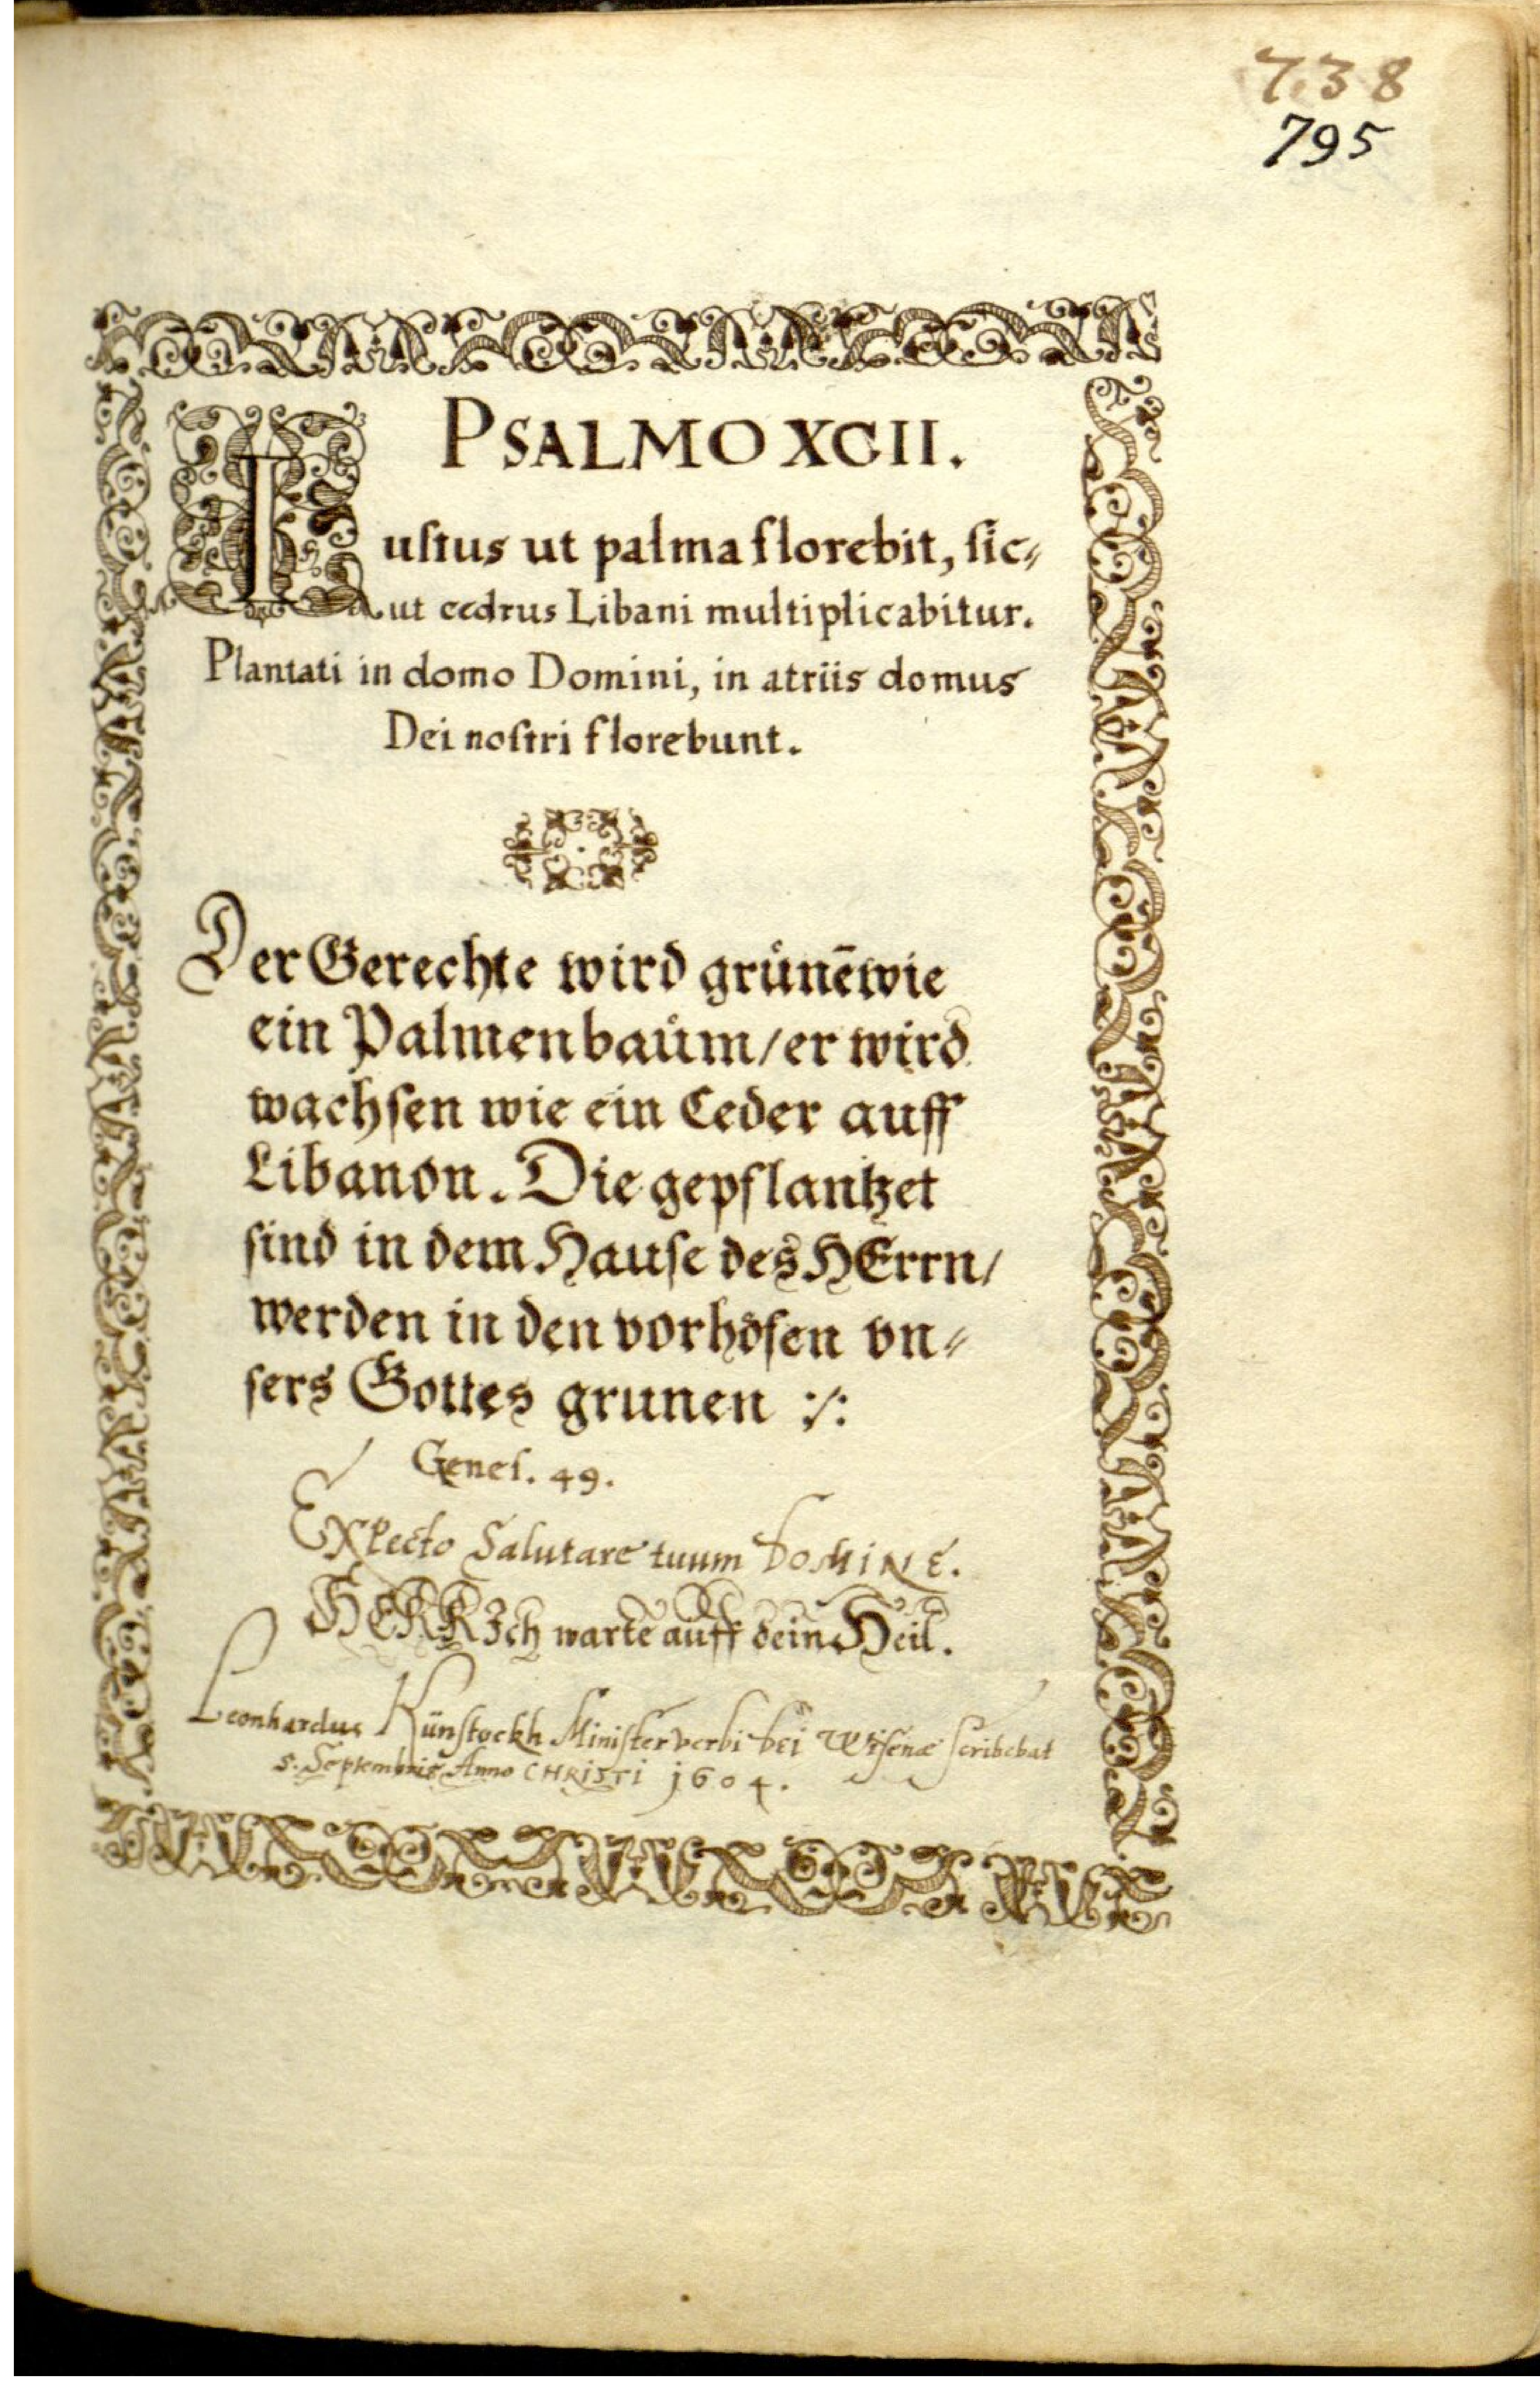 738
795
PSALMO XCII.
Iuſtus ut palma florebit, ſic⸗
ut cedrus Libani multiplicabitur.
Plantati in domo Domini, in atriis domus
Dei noſtri florebunt.
Der Gerechte wird grůnē wie
ein Palmenbaům/ er wird
wachſen wie ein Ceder auff
Libanon. Die gepflantzet
ſind in dem Hauſe des HErrn/
werden in den vorhöfen vn⸗
ſers Gottes grunen :/:
Geneſ. 49.
Expecto Salutare tuum DOMINE.
HERR Ich warte auff dein Heil.
Leonhardus Künſtockh Miniſter verbi bei Weiſenæ ſcribebat
5. Septembris Anno CHRISTI 1604.